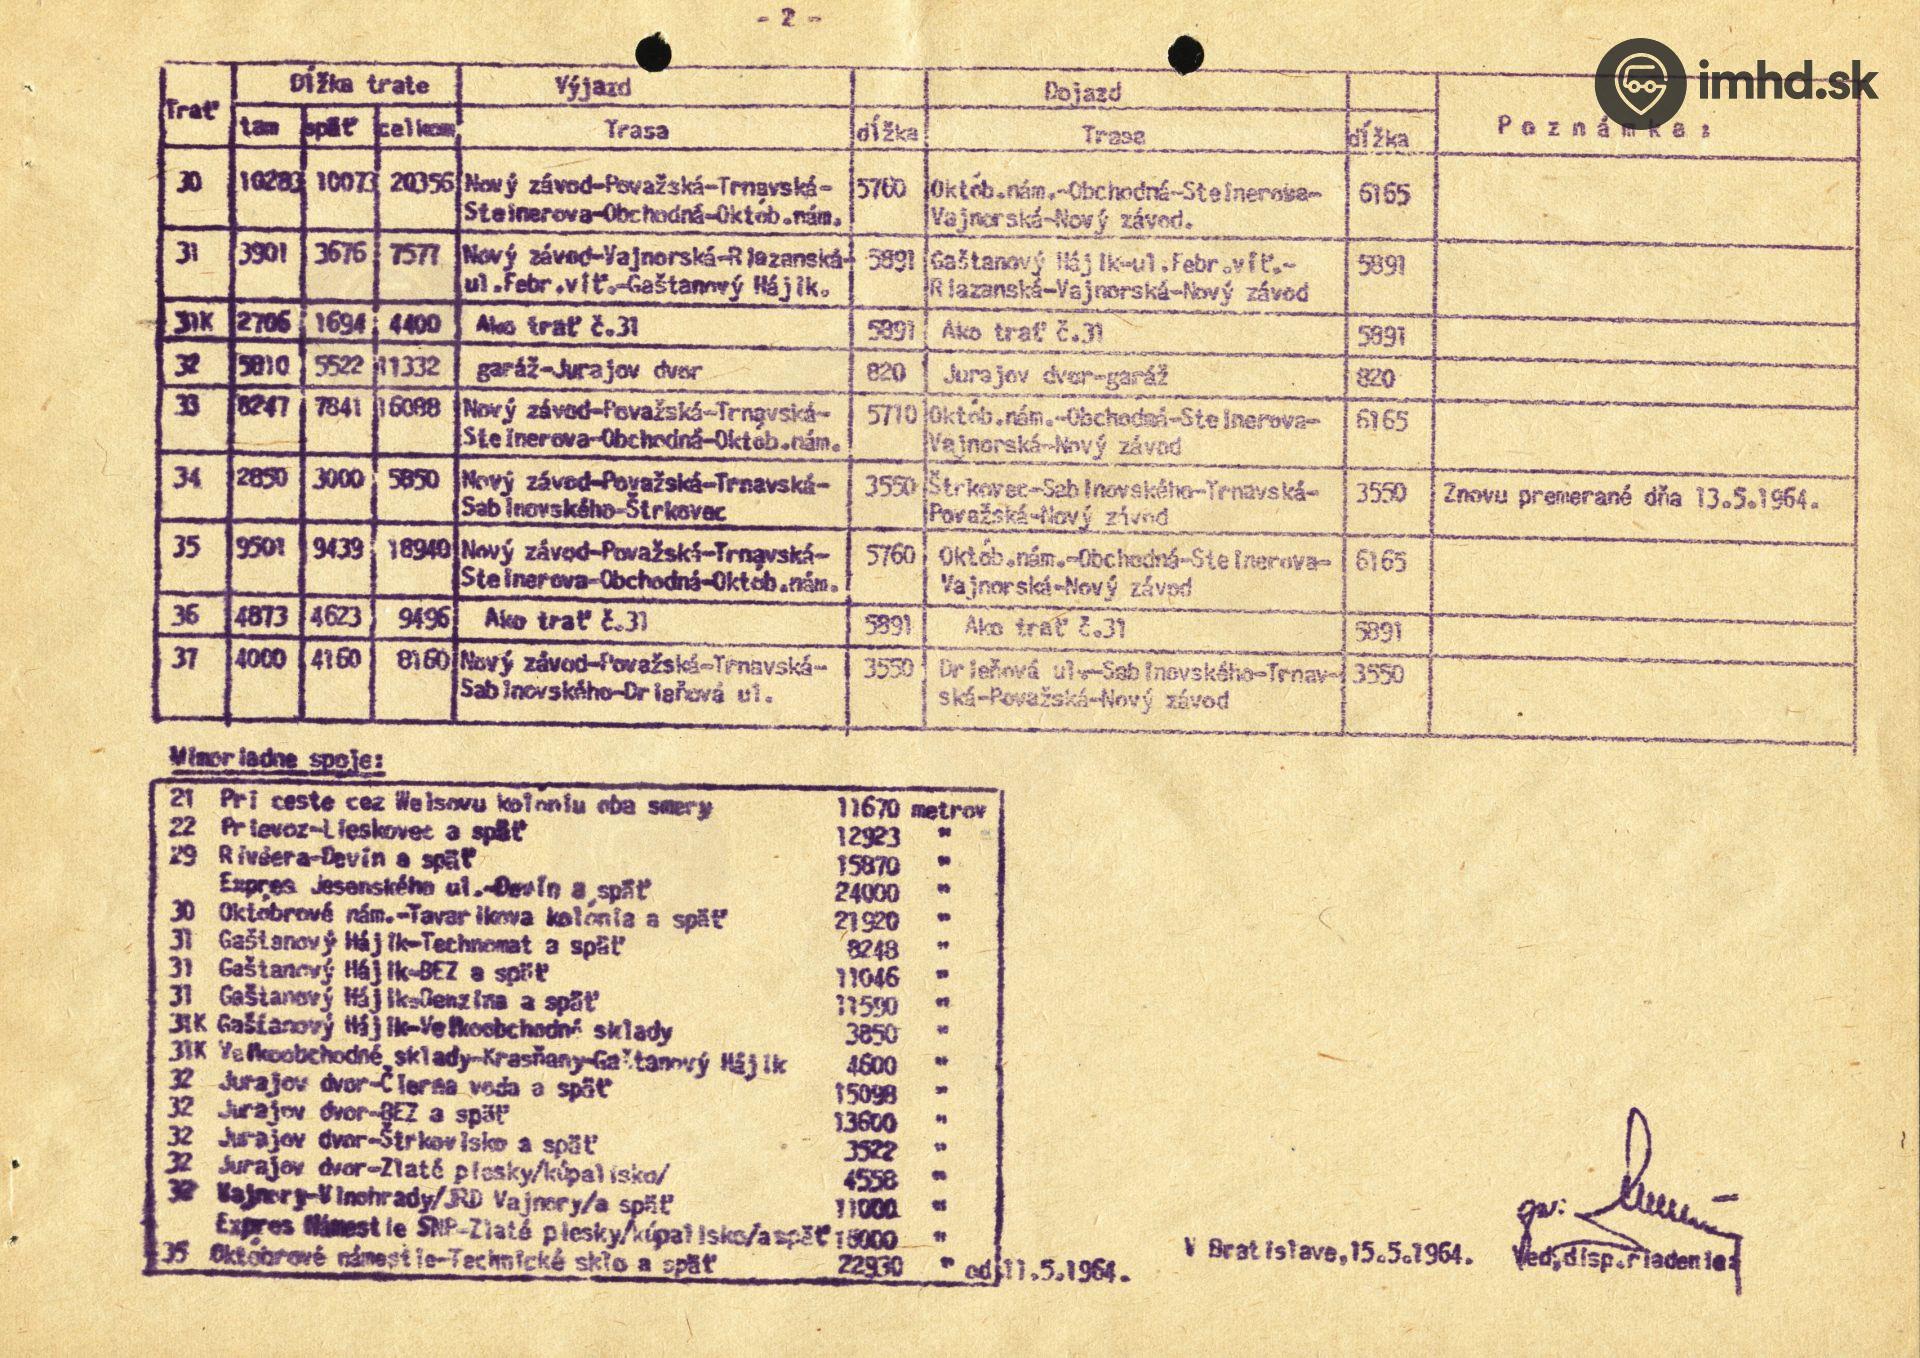 - 2 -
imhd.sk
Trať Dĺžka trate Výjazd Dojazd Poznámka:
tam späť celkom Trasa dĺžka Trasa dĺžka
30 10283 10073 20356 Nový závod-Považská-Trnavská- 5760 Októb.nám.-Obchodná-Steinerova- 6165
Steinerova-Obchodná-Októb.nám. Vajnorská-Nový závod.
31 3901 3676 7577 Nový závod-Vajnorská-Riazanská- 5891 Gaštanový Hájik-ul.Febr.víť.- 5891
ul.Febr.víť.-Gaštanový Hájik. Riazanská-Vajnorská-Nový závod
31K 2706 1694 4400 Ako trať č.31 5891 Ako trať č.31 5891
32 5810 5522 11332 garáž-Jurajov dvor 820 Jurajov dvor-garáž 820
33 8247 7841 16088 Nový závod-Považská-Trnavská- 5710 Októb.nám.-Obchodná-Steinerova- 6165
Steinerova-Obchodná-Októb.nám. Vajnorská-Nový závod
34 2850 3000 5850 Nový závod-Považská-Trnavská- 3550 Štrkovec-Sabinovského-Trnavská- 3550 Znovu premerané dňa 13.5.1964.
Sabinovského-Štrkovec Považská-Nový závod
35 9501 9439 18940 Nový závod-Považská-Trnavská- 5760 Októb.nám.-Obchodná-Steinerova- 6165
Steinerova-Obchodná-Októb.nám. Vajnorská-Nový závod
36 4873 4623 9496 Ako trať č.31 5891 Ako trať č.31 5891
37 4000 4160 8160 Nový závod-Považská-Trnavská- 3550 Drieňová ul.-Sabinovského-Trnav- 3550
Sabinovského-Drieňová ul. ská-Považská-Nový závod
Mimoriadne spoje:
21 Pri ceste cez Weisovu koloniu oba smery 11670 metrov
22 Prievoz-Lieskovec a späť 12923 "
29 Riviera-Devín a späť 15870 "
Expres Jesenského ul.-Devín a späť 24000 "
30 Októbrové nám.-Tavarikova kolónia a späť 21920 "
31 Gaštanový Hájik-Technomat a späť 8248 "
31 Gaštanový Hájik-BEZ a späť 11046 "
31 Gaštanový Hájik-Benzina a späť 11590 "
31K Gaštanový Hájik-Veľkoobchodné sklady 3850 "
31K Veľkoobchodné sklady-Krasňany-Gaštanový Hájik 4600 "
32 Jurajov dvor-Čierna voda a späť 15098 "
32 Jurajov dvor-BEZ a späť 13600 "
32 Jurajov dvor-Štrkovisko a späť 3522 "
32 Jurajov dvor-Zlaté piesky/kúpalisko/ 4558 "
32 Vajnory-Vinohrady/JRD Vajnory/a späť 11000 "
Expres Námestie SNP-Zlaté piesky/kúpalisko/a späť 18000 "
35 Októbrové námestie-Technické sklo a späť 22930 " od 11.5.1964.
V Bratislave,15.5.1964. Ved.disp.riadenia: